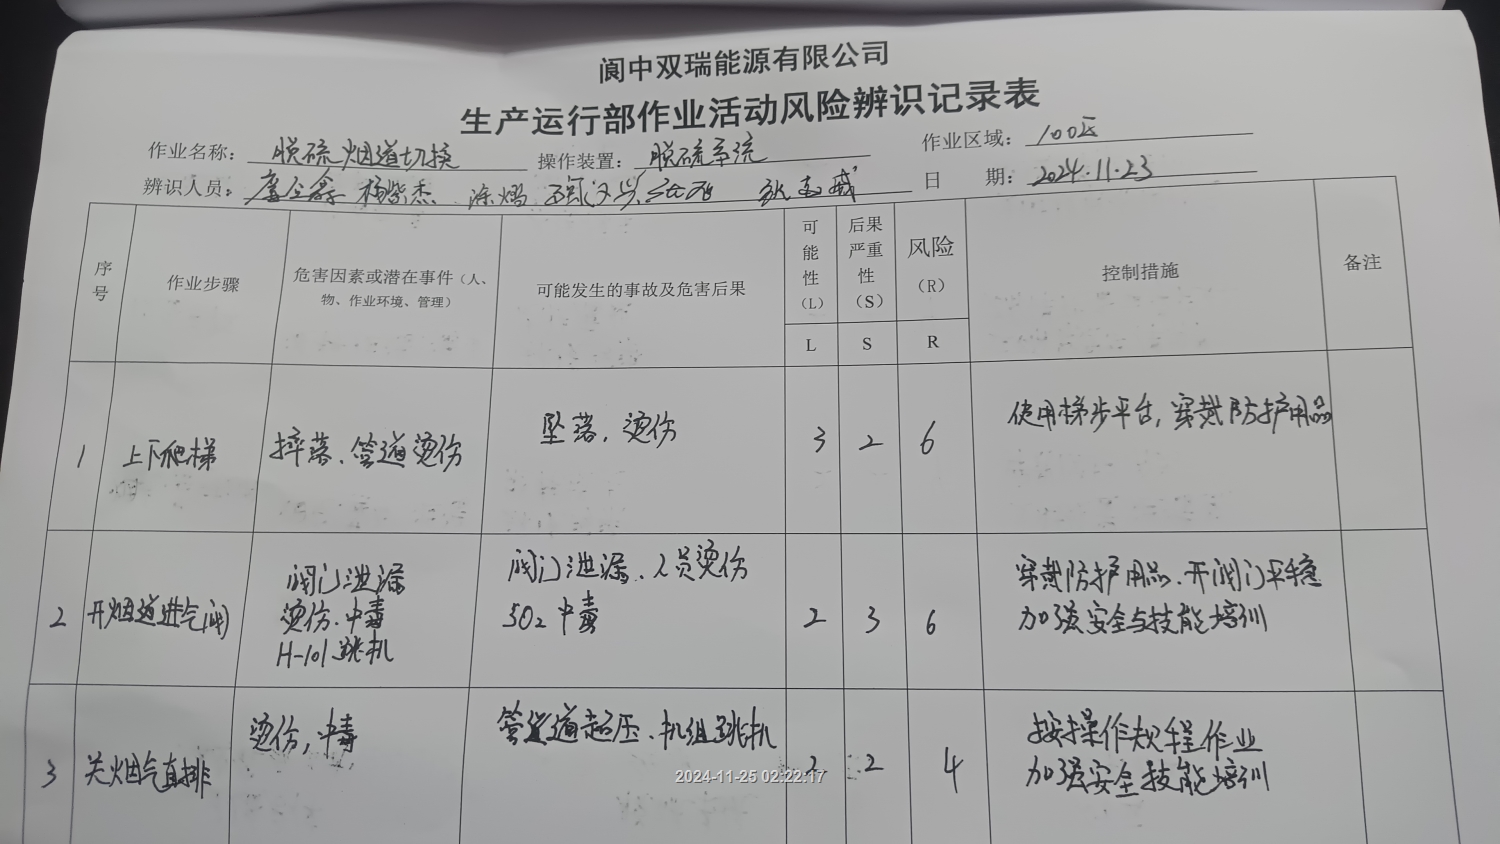 阆中双瑞能源有限公司
生产运行部作业活动风险辨识记录表
作业名称: 脱硫烟道切换 操作装置: 脱硫系统 作业区域: 100区
辨识人员: 杨紫杰 涂熠 日 期: 2024.11.23
序号 作业步骤 危害因素或潜在事件(人、物、作业环境、管理) 可能发生的事故及危害后果 可能性(L) 后果严重性(S) 风险(R) 控制措施 备注
L S R
1 上下爬梯 摔落、管道烫伤 坠落,烫伤 3 2 6 使用梯步平台,穿戴防护用品
2 开烟道进气阀 阀门泄漏 烫伤、中毒 H-101跳机 阀门泄漏、人员烫伤 SO2中毒 2 3 6 穿戴防护用品、开阀门平稳 加强安全与技能培训
3 关烟气直排 烫伤,中毒 管道超压、机组跳机 2 2 4 按操作规程作业 加强安全技能培训
2024-11-25 02:22:17